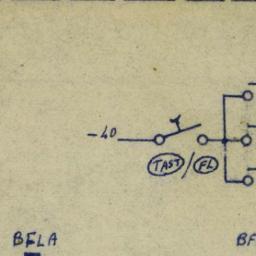 -40
TAST/FL
BELA
BF